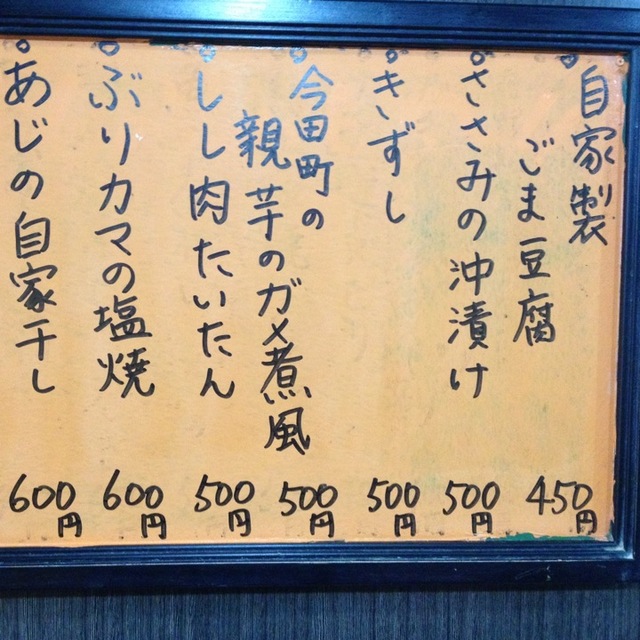 自家製
ごま豆腐
450円
ささみの沖漬け
500円
きずし
500円
今田町の
親芋のガメ煮風
500円
しし肉たいたん
500円
ぶりカマの塩焼
600円
あじの自家干し
600円